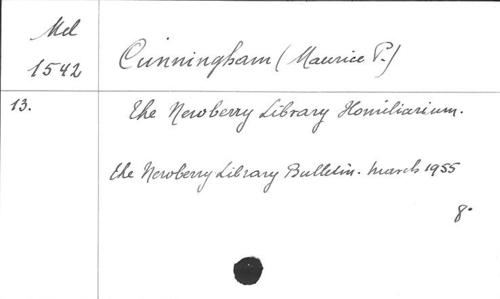 Mel
1542
Cunningham (Maurice P.)
13.
The Newberry Library Homiliarium.
The Newberry Library Bulletin. March 1955
8°